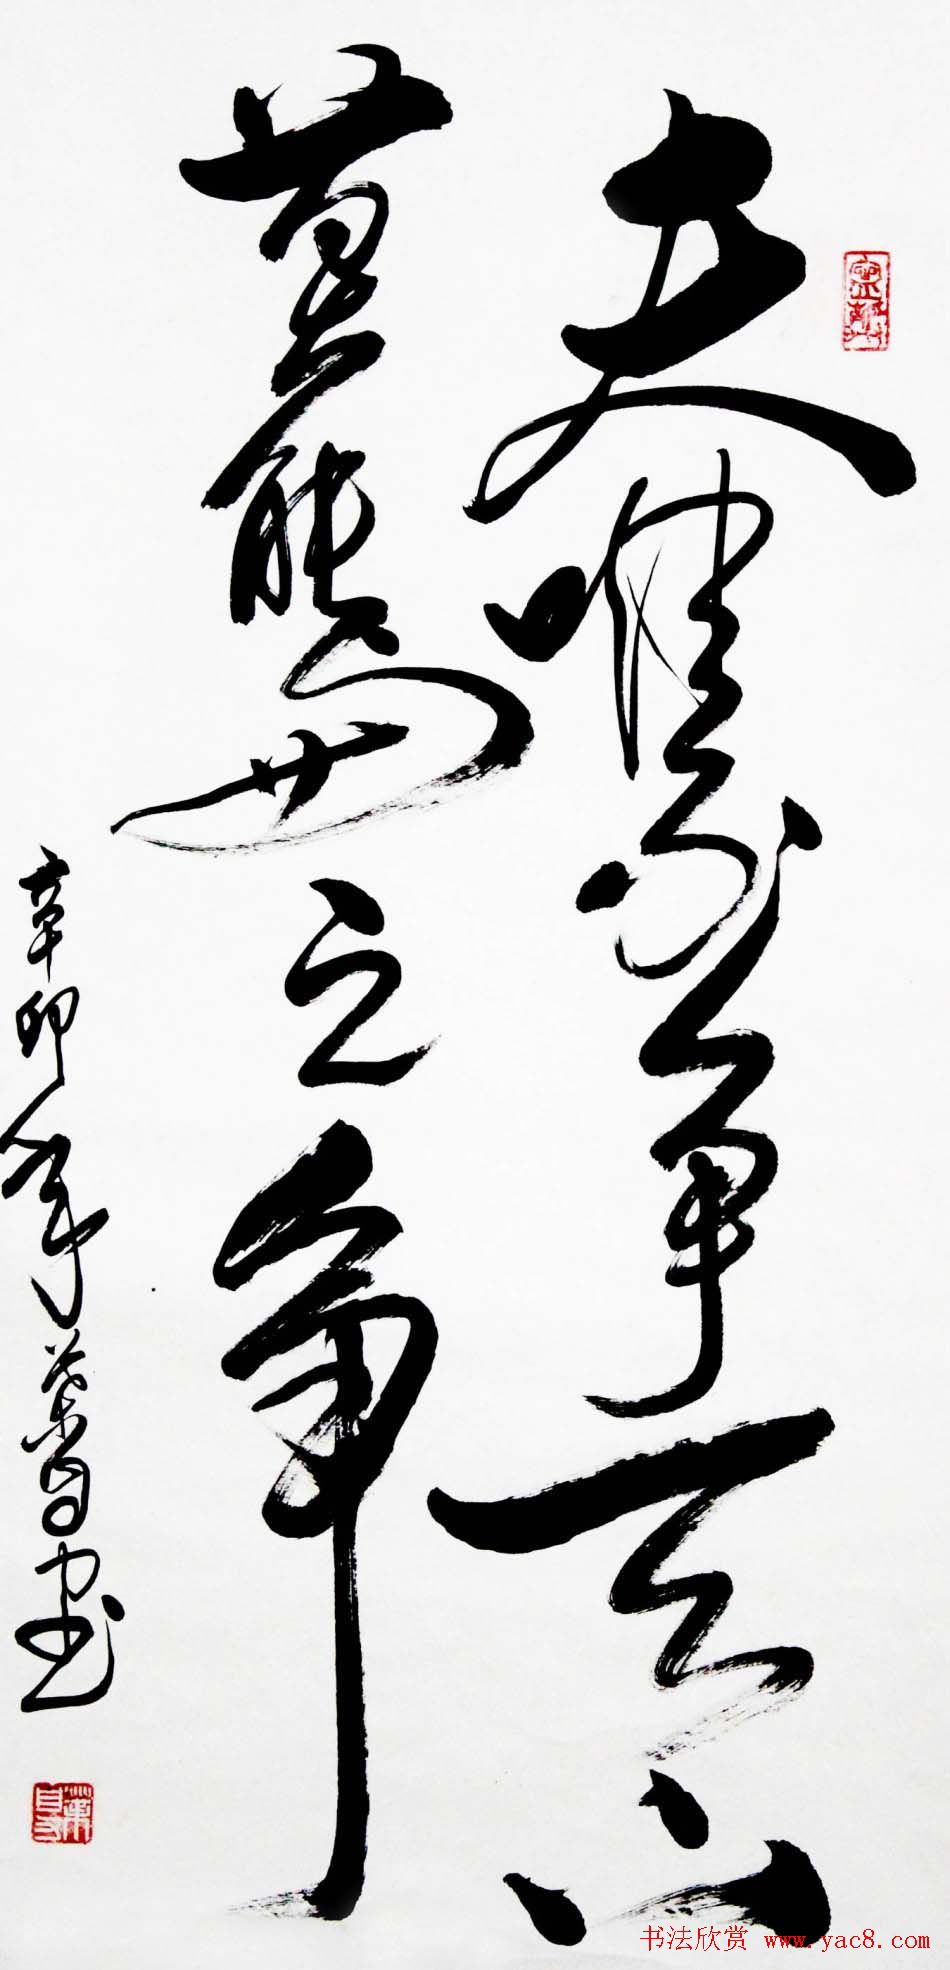 夫唯不争天下
莫能與之争
辛卯年葉
书法欣赏 www.yac8.com